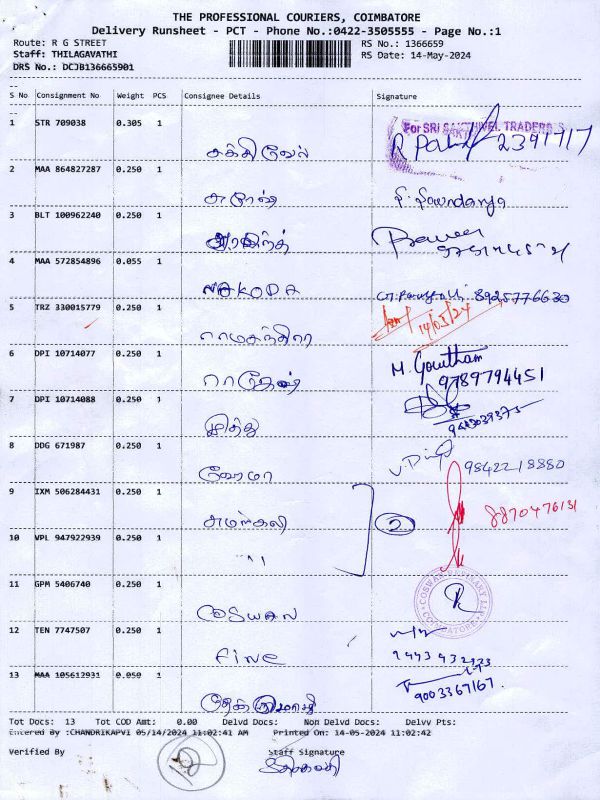 THE PROFESSIONAL COURIERS, COIMBATORE
Delivery Runsheet - PCT - Phone No.:0422-3505555 - Page No.:1
Route: R G STREET RS No.: 1366659
Staff: THILAGAVATHI RS Date: 14-May-2024
DRS No.: DCJB136665901
S No Consignment No Weight PCS Consignee Details Signature
1 STR 709038 0.305 1
For SRI SAKTHIVEL TRADERS
சக்திவேல் 2391717
2 MAA 864827287 0.250 1
சுரேஷ் S. Soundarya
3 BLT 100962240 0.250 1
அரவிந்த் Praveen
4 MAA 572854896 0.055 1
NAKODA 8925776630
5 TRZ 330015779 0.250 1 14/05/24
ராமசந்திரா
6 DPI 10714077 0.250 1 M. Gowtham
9789794451
7 DPI 10714088 0.250 1
இந்து
8 DDG 671987 0.250 1
ஹேமா 9842218880
9 IXM 506284431 0.250 1
சுமங்கலி 2 8870476131
10 VPL 947922939 0.250 1
" 11
11 GPM 5406740 0.250 1
COSWAN
12 TEN 7747507 0.250 1
Fine
13 MAA 105612931 0.059 1
9003367167
Tot Docs: 13 Tot COD Amt: 0.00 Delvd Docs: Non Delvd Docs: Delvv Pts:
Entered By :CHANDRIKAPVI 05/14/2024 11:02:41 AM Printed On: 14-05-2024 11:02:42
Verified By Staff Signature